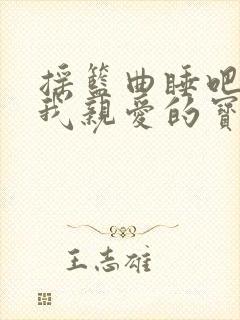 摇籃曲睡吧
我親愛的寶
王志雄